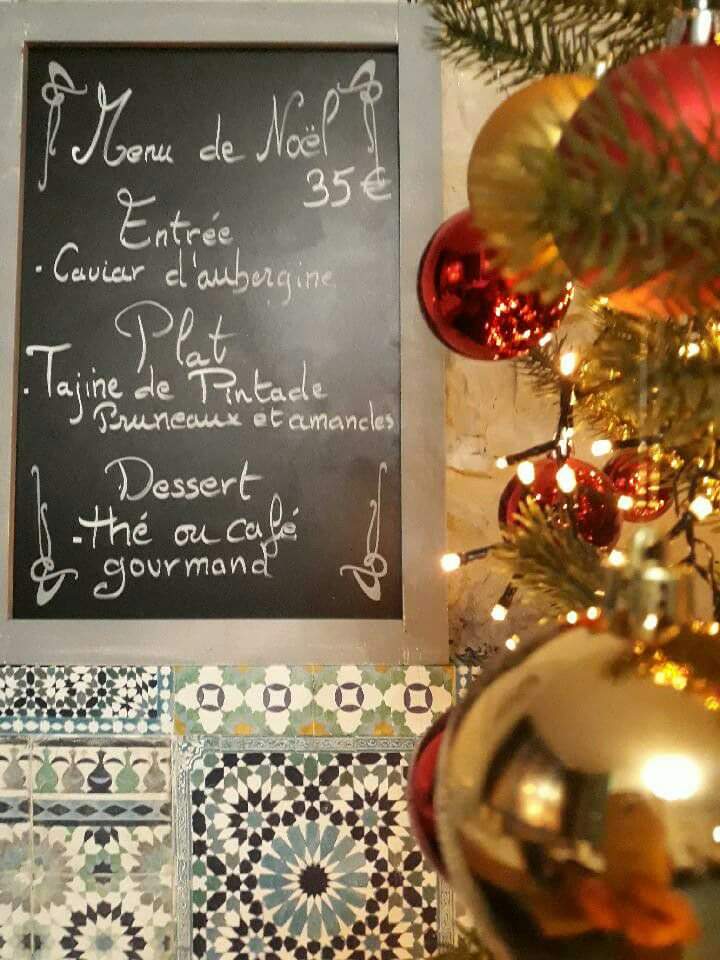 Menu de Noël
35€
Entrée
• Caviar d'aubergine
Plat
• Tajine de Pintade
Pruneaux et amandes
Dessert
• thé ou café
gourmand